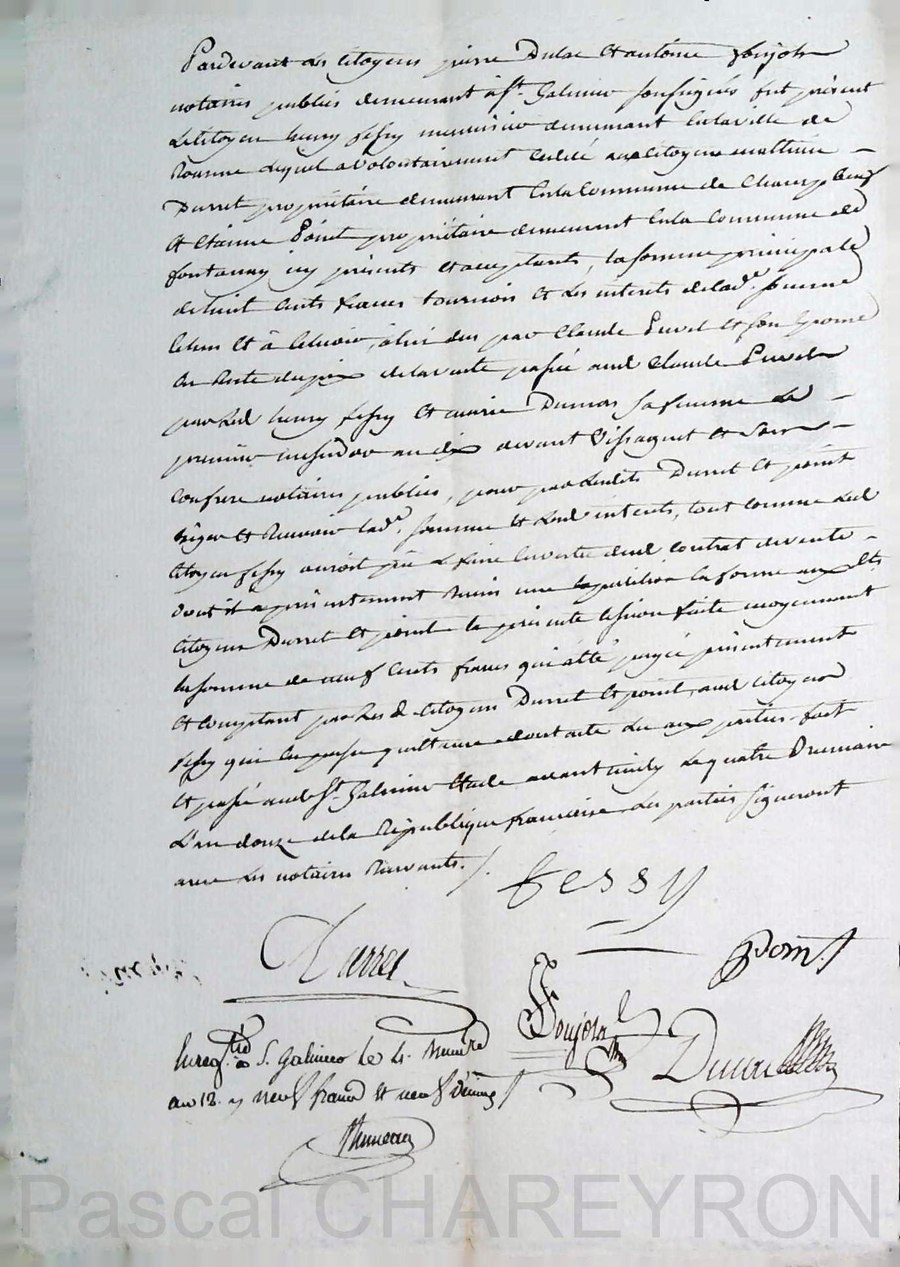 Pardevant les Citoyens pierre Dulac et antoine Poujola
notaires publics demeurant à St. Galmier soussignés fut présent
le Citoyen henry fessy menuisier demeurant en la ville de
Roanne lequel a Volontairement Cédé aux Citoyens mathieu
Durret propriétaire demeurant en la Commune de Champ
et Etienne Point propriétaire demeurant en la Commune de
fontanay icy présents et acceptants, la somme principale
de huit Cents francs tournois et les interets de lad. somme
Echus et à Echeoir, à lui dus par Claude et son Epouse
en Reste du prix de la vente passée aud Claude
par led henry fessy et marie Dumas sa femme le
premier messidor an dix devant Vissaguet et son
Confrere notaires publics, pour par lesdits Durret et point
Exiger et Recevoir lad. somme et les d interets, tout comme led
Citoyen fessy auroit pu le faire en vertu dud contrat de vente
dont il a présentement Remis une Expédition en forme aux dts
Citoyens Durret et point la présente Cession faite moyennant
la somme de neuf Cents francs qui a été payée présentement
et Comptant par les d. Citoyens Durret et point, aud Citoyen
fessy qui en passe quittance dont acte lu aux parties fait
et passé aud St. Galmier Etude avant midy le quatre Brumaire
L'an douze de la République francaise les parties signeront
avec les notaires Recevants. /.
fessy
Durret
Point
Poujola
Dulac
Enregtré à S. Galmier le 4 Brumre
an 12. Rx neuf francs et neuf décimes
Pascal CHAREYRON